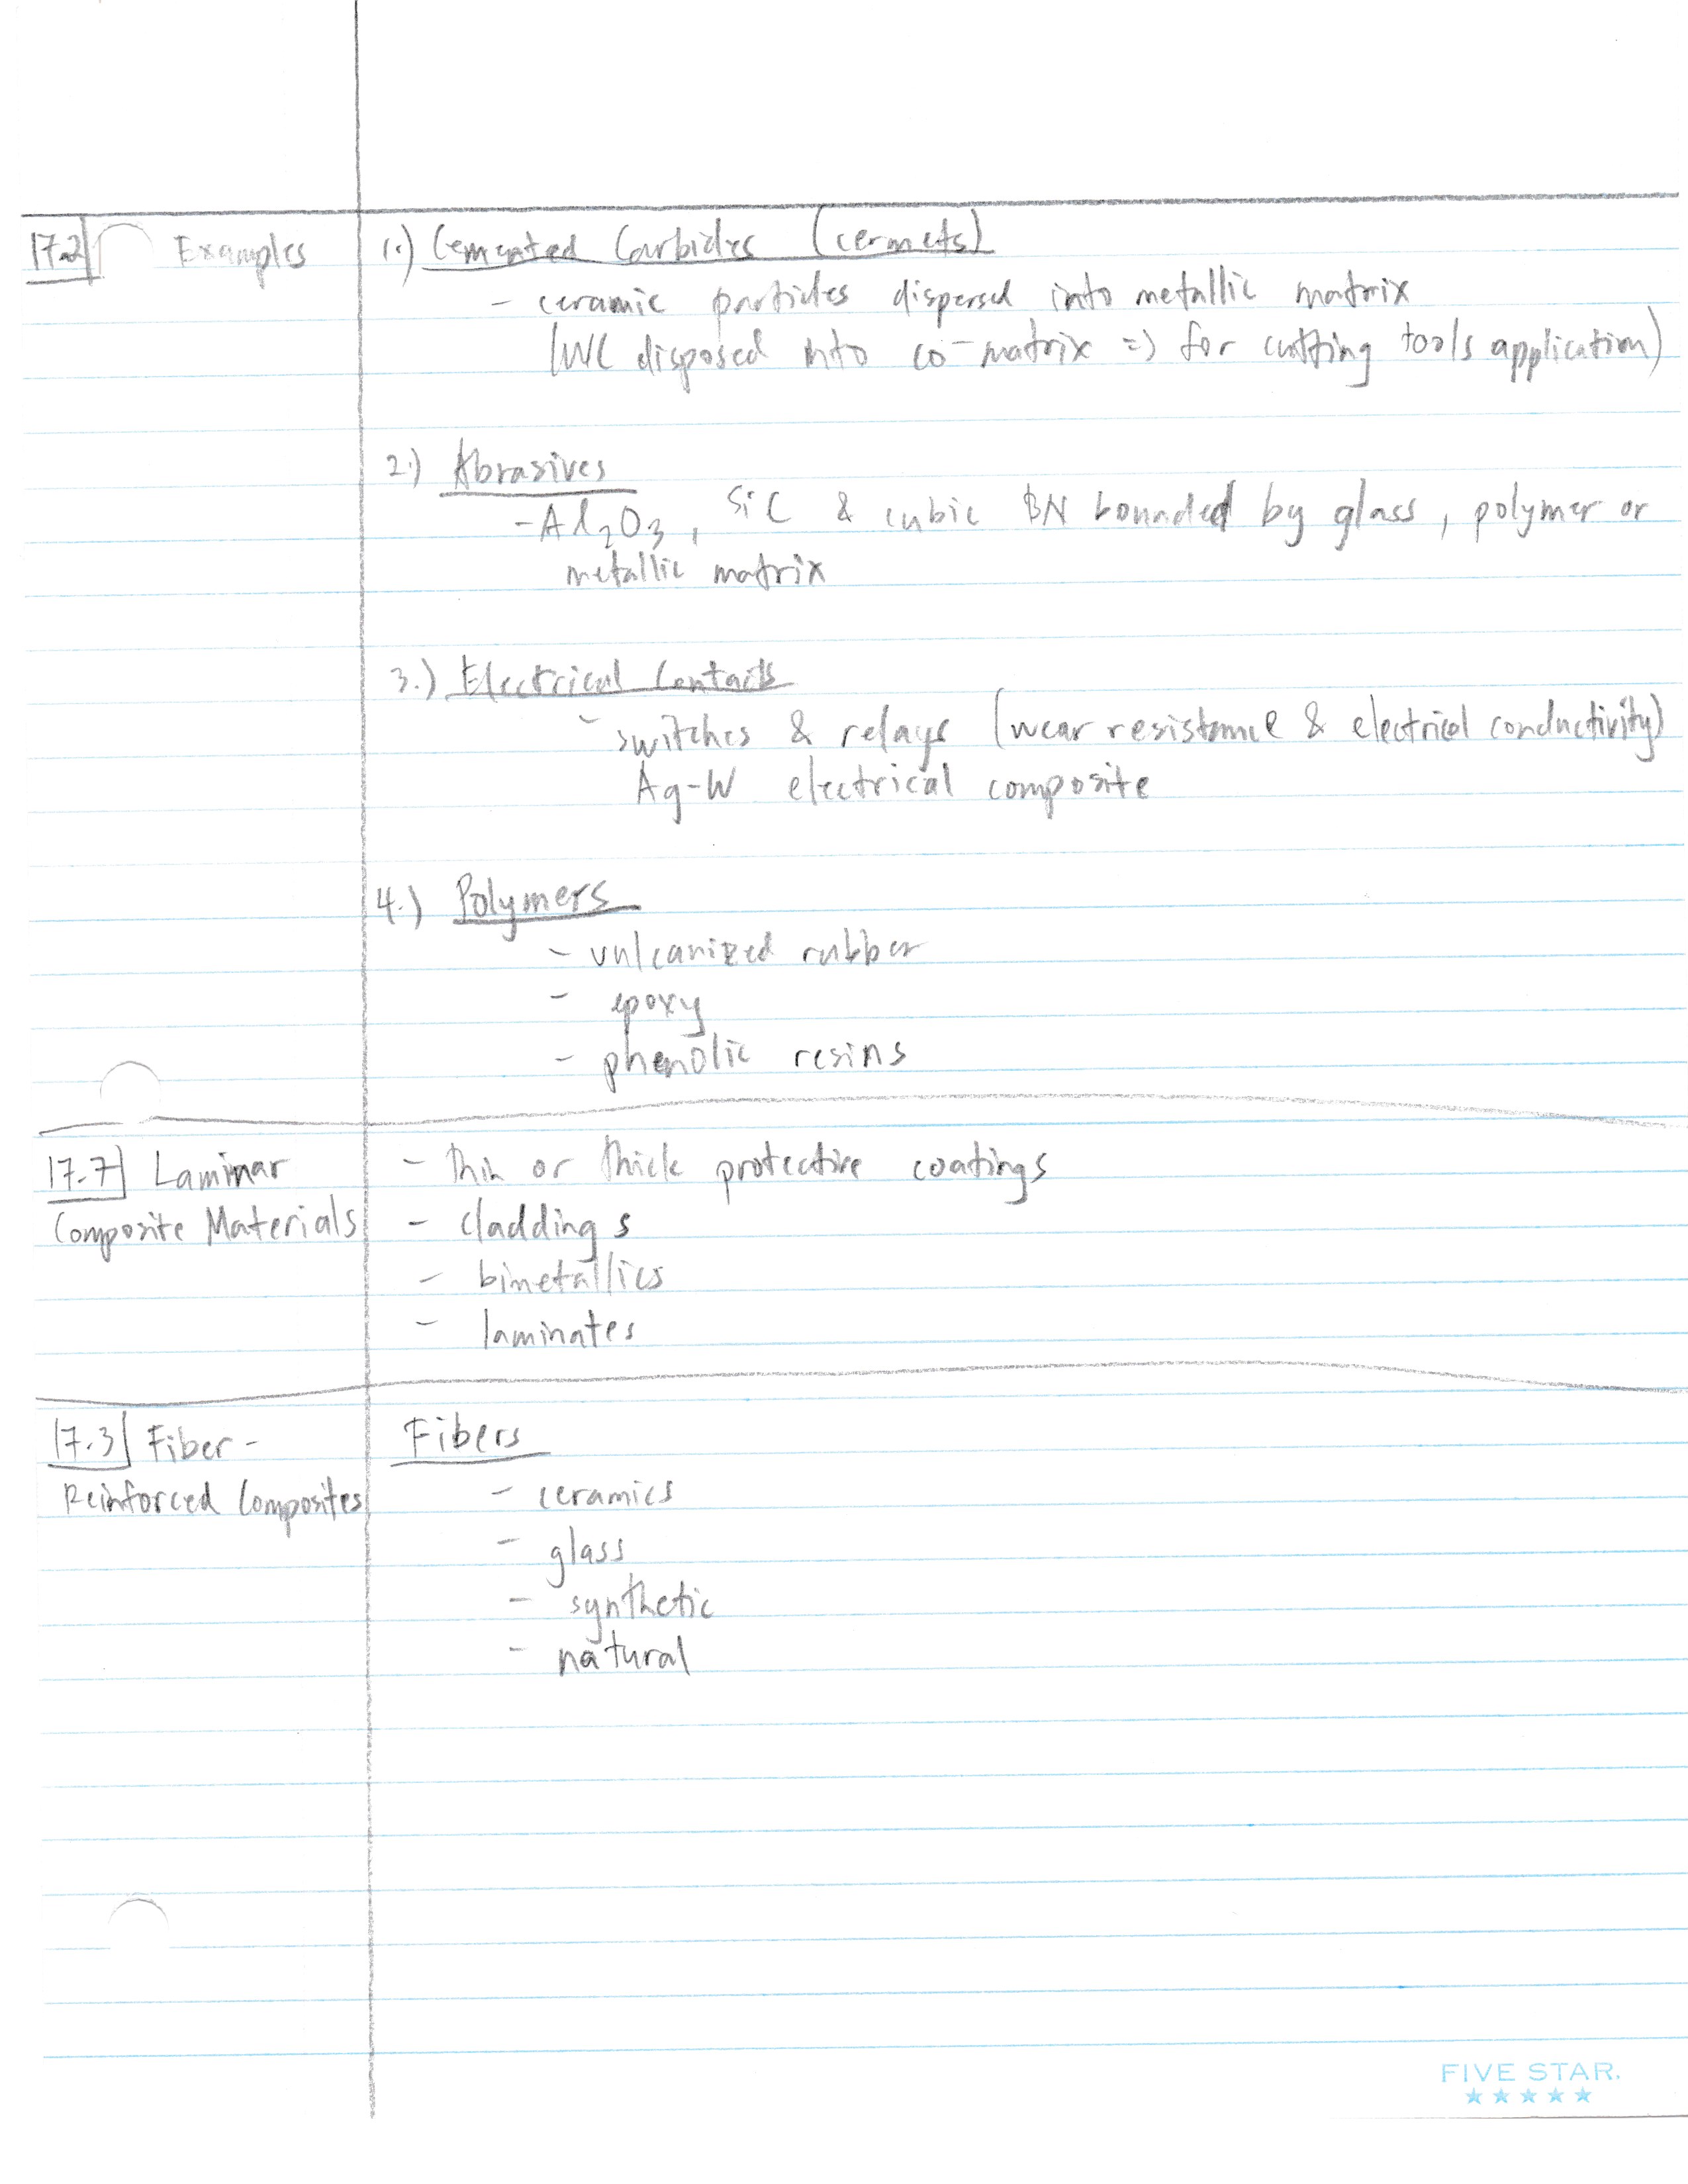 17.2 Examples 1.) Cemented Carbides (cermets)
- ceramic particles dispersed into metallic matrix
(WC disposed into co-matrix => for cutting tools application)
2.) Abrasives
- Al2O3, SiC & cubic BN bounded by glass, polymer or
metallic matrix
3.) Electrical Contacts
- switches & relays (wear resistance & electrical conductivity)
Ag-W electrical composite
4.) Polymers
- vulcanized rubber
- epoxy
- phenolic resins
17.7 Laminar - thin or thick protective coatings
Composite Materials - claddings
- bimetallics
- laminates
17.3 Fiber- Fibers
Reinforced Composites - ceramics
- glass
- synthetic
- natural
FIVE STAR.